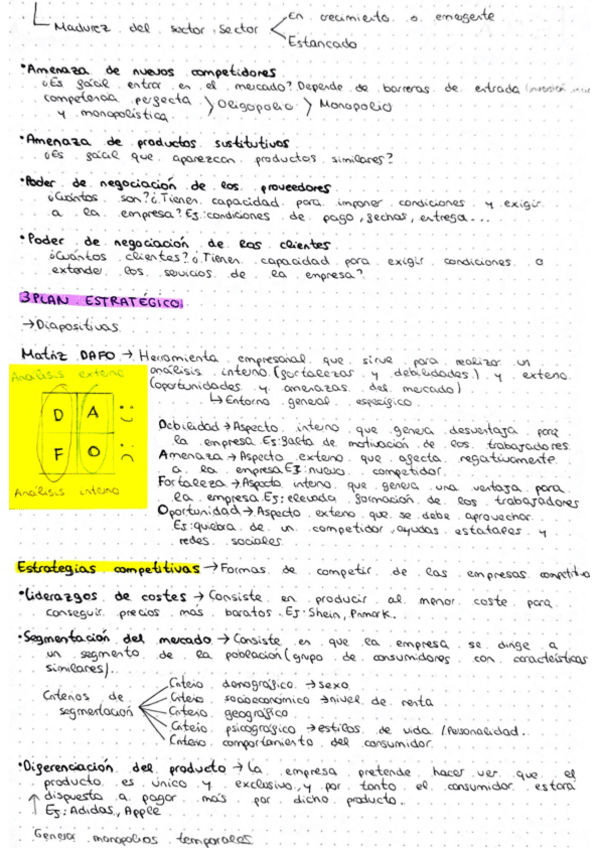 Madurez del sector: Sector
En crecimiento o emergente
Estancado
•Amenaza de nuevos competidores
¿Es fácil entrar en el mercado? Depende de barreras de entrada
competencia perfecta > Oligopolio > Monopolio
y monopolística
•Amenaza de productos sustitutivos
¿Es fácil que aparezcan productos similares?
•Poder de negociación de los proveedores
¿Cuántos son? ¿Tienen capacidad para imponer condiciones y exigir
a la empresa? Ej: condiciones de pago, fechas, entrega...
•Poder de negociación de los clientes
¿Cuántos clientes? ¿Tienen capacidad para exigir condiciones o
extender los servicios de la empresa?
3 PLAN ESTRATÉGICO
→Diapositivas
Matriz DAFO → Herramienta empresarial que sirve para realizar un
análisis interno (fortalezas y debilidades) y externo
(oportunidades y amenazas del mercado)
↳ Entorno general específico
Análisis externo
D A :)
F O :(
Análisis interno
Debilidad → Aspecto interno que genera desventaja para
la empresa. Ej: falta de motivación de los trabajadores
Amenaza → Aspecto externo que afecta negativamente
a la empresa Ej: nuevo competidor
Fortaleza → Aspecto interno que genera una ventaja para
la empresa Ej: elevada formación de los trabajadores
Oportunidad → Aspecto externo que se debe aprovechar
Ej: quiebra de un competidor, ayudas estatales y
redes sociales
Estrategias competitivas → Formas de competir de las empresas
•Liderazgos de costes → Consiste en producir al menor coste para
conseguir precios más baratos. Ej: Shein, Primark.
•Segmentación del mercado → Consiste en que la empresa se dirige a
un segmento de la población (grupo de consumidores con características
similares).
Criterios de
segmentación
Criterio demográfico → sexo
Criterio socioeconómico → nivel de renta
Criterio geográfico
Criterio psicográfico → estilos de vida / Personalidad.
Criterio comportamiento del consumidor
•Diferenciación del producto → La empresa pretende hacer ver que el
producto es único y exclusivo, y por tanto el consumidor estará
dispuesto a pagar más por dicho producto.
↑ Ej: Adidas, Apple
Generar monopolios temporales